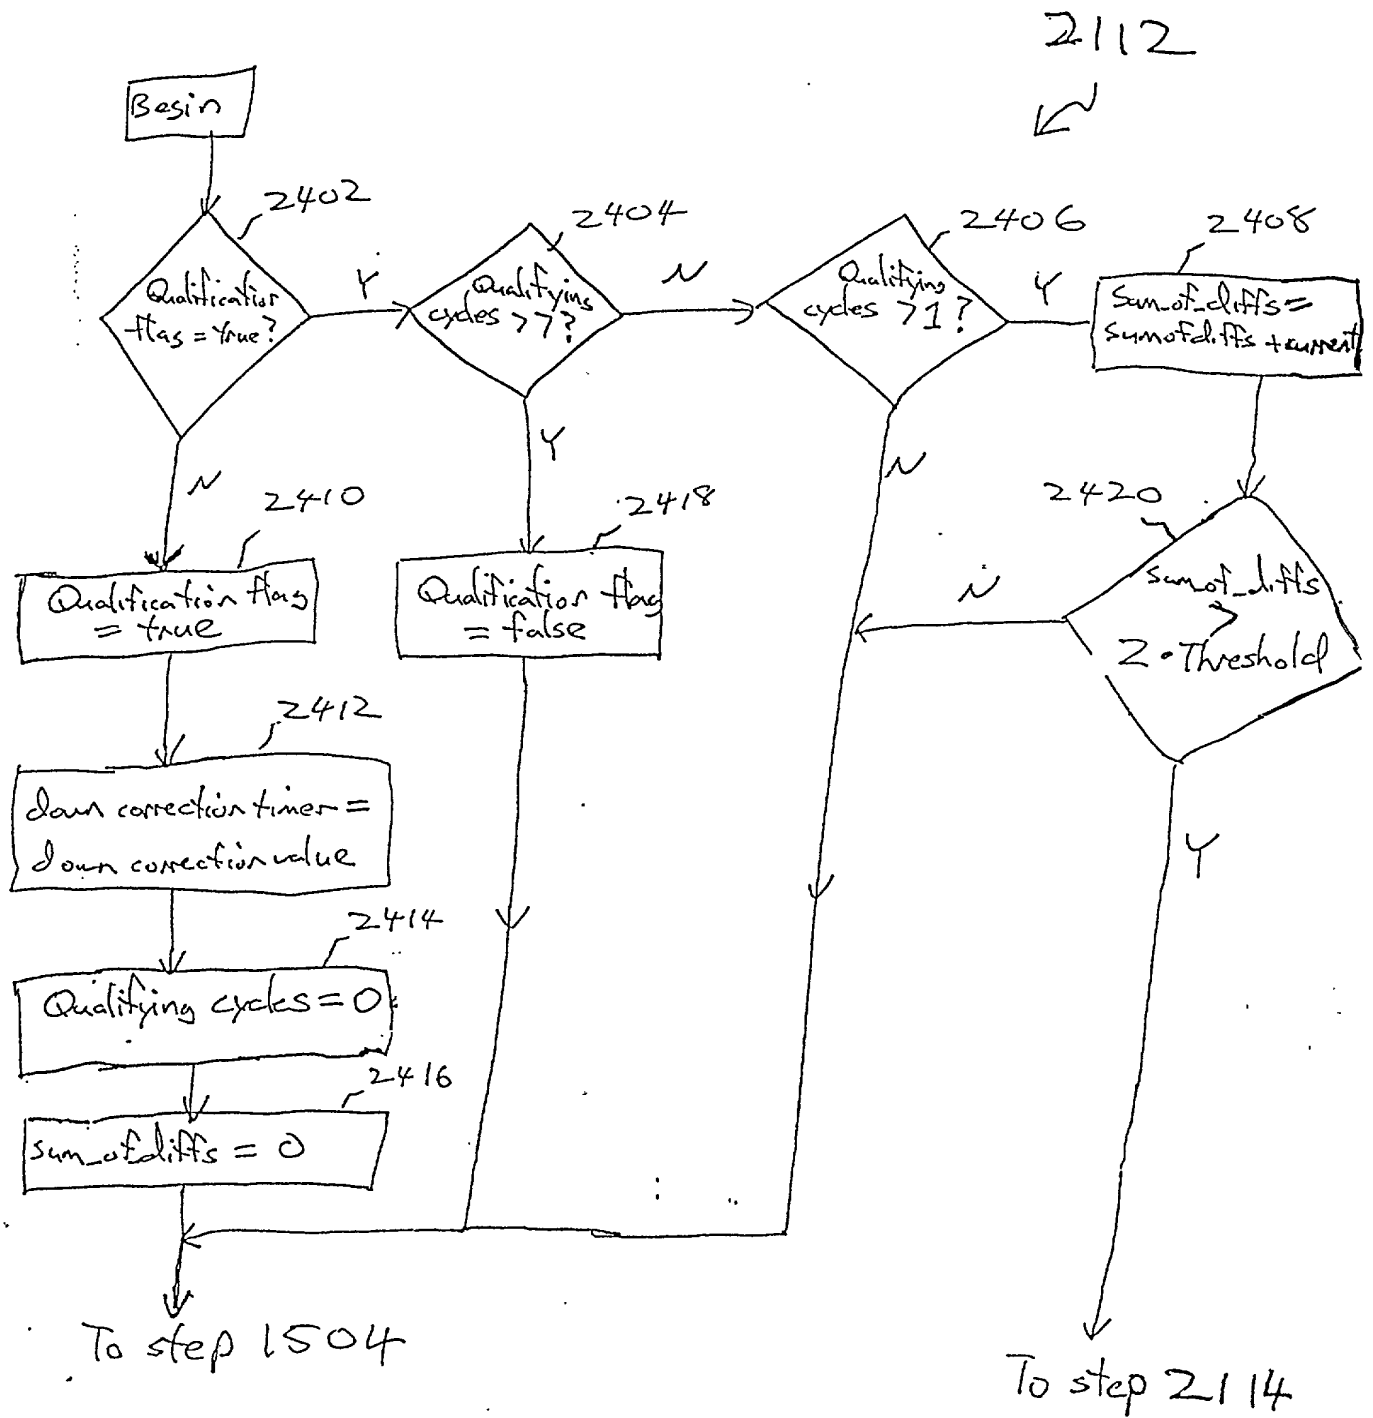 2112
Begin
2402
Qualification
flag = true?
Y
2404
Qualifying
cycles >7?
N
2406
Qualifying
cycles >1?
Y
2408
Sum_of_diffs =
sumofdiffs + current
N
2410
Qualification flag
= true
Y
2418
Qualification flag
= false
N
2420
sumof_diffs
>
2 • Threshold
N
2412
down correction timer =
down correction value
Y
2414
Qualifying cycles = 0
2416
sum_of_diffs = 0
To step 1504
To step 2114